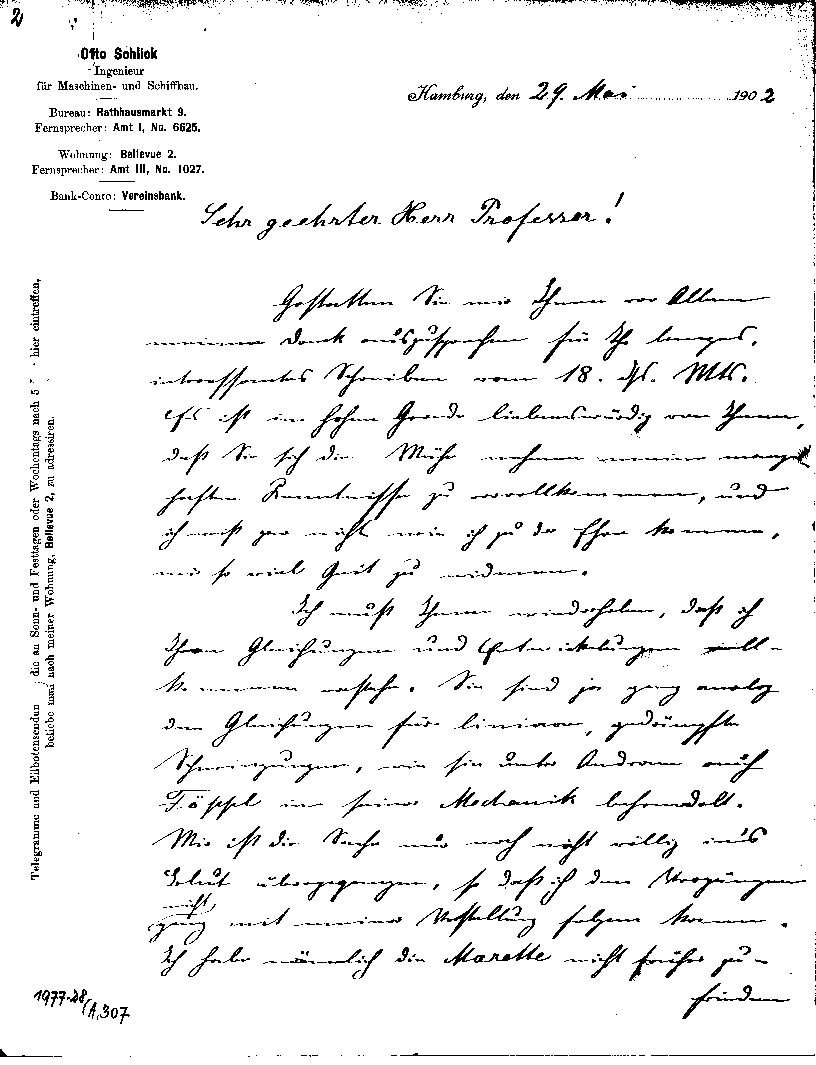 2
Otto Schlick
Ingenieur
für Maschinen- und Schiffbau.
Bureau: Rathhausmarkt 9.
Fernsprecher: Amt I, No. 6625.
Wohnung: Bellevue 2.
Fernsprecher: Amt III, No. 1027.
Bank-Conto: Vereinsbank.
Hamburg, den 29. Mai 1902
Sehr geehrter Herr Professor!
Gestatten Sie mir Ihnen vor Allem
meinen Dank auszusprechen für Ihr langes,
interessantes Schreiben vom 18. ds. Mts.
Es ist im hohen Grade liebenswürdig von Ihnen,
daß Sie sich die Mühe nehmen meine mangel
haften Kenntnisse zu vervollkommnen, und
ich weiß gar nicht wie ich zu der Ehre komme,
mir so viel Zeit zu widmen.
Ich muß Ihnen wiederholen, daß ich
Ihre Gleichungen und Entwickelungen voll-
kommen verstehe. Sie sind ja ganz analog
den Gleichungen für lineare, gedämpfte
Schwingungen, wie sie unter Anderem auch
Föppl in seiner Mechanik behandelt.
Mir ist die Sache nur noch nicht völlig in's
Gebiet übergegangen, so daß ich den Vorgängen
nicht
ganz mit meiner Vorstellung folgen kann.
Ich habe nämlich die Marotte nicht früher zu-
frieden
Telegramme und Eilbotensendun die an Sonn- und Festtagen oder Wochentags nach 5 hier eintreffen,
beliebe man nach meiner Wohnung, Bellevue 2, zu adressiren.
1977-28/A.307